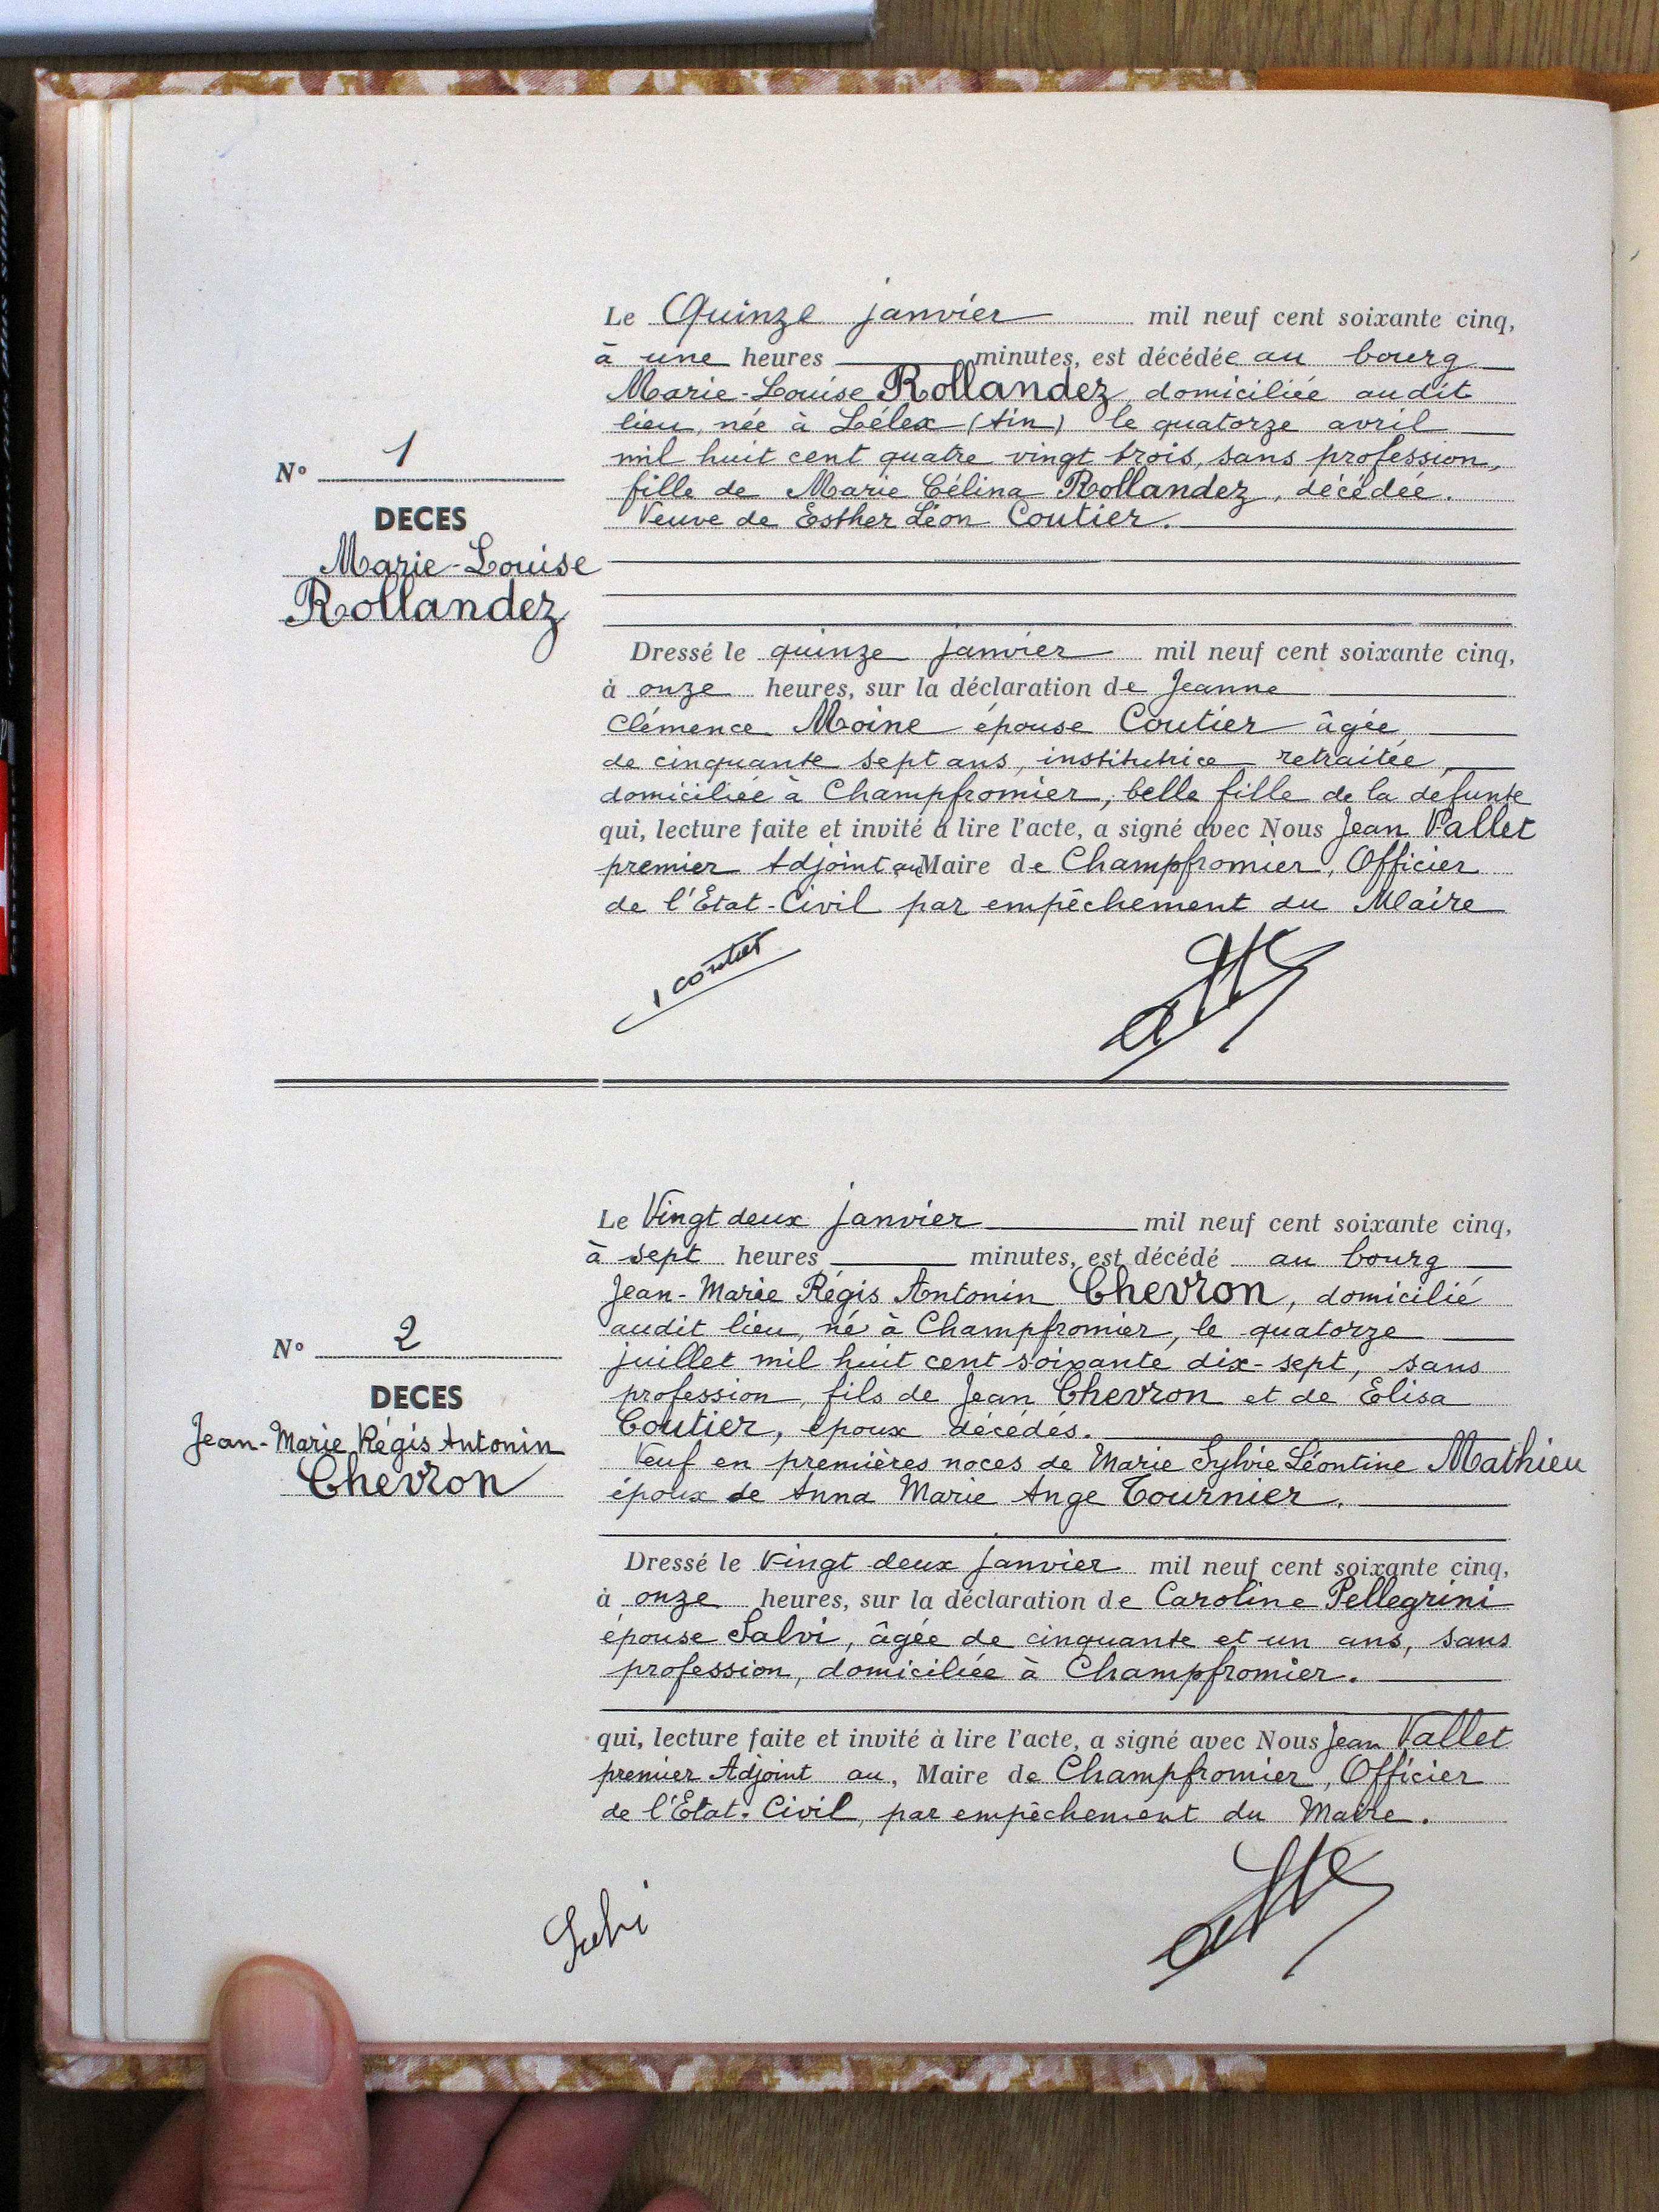 Le Quinze janvier mil neuf cent soixante cinq,
à une heures minutes, est décédée au bourg
Marie-Louise Rollandez, domiciliée audit
lieu, née à Lélex (Ain) le quatorze avril
mil huit cent quatre vingt trois, sans profession,
fille de Marie Célina Rollandez, décédée.
Veuve de Esther Léon Coutier.
N° 1
DECES
Marie-Louise
Rollandez
Dressé le quinze janvier mil neuf cent soixante cinq,
à onze heures, sur la déclaration de Jeanne
Clémence Moine épouse Coutier âgée
de cinquante sept ans, institutrice retraitée,
domiciliée à Champfromier, belle fille de la defunte
qui, lecture faite et invité à lire l'acte, a signé avec Nous Jean Vallet
premier Adjoint au Maire de Champfromier, Officier
de l'Etat-Civil par empêchement du Maire
J Coutier
Le Vingt deux janvier mil neuf cent soixante cinq,
à sept heures minutes, est décédé au bourg
Jean-Marie Régis Antonin Chevron, domicilié
audit lieu, né à Champfromier, le quatorze
juillet mil huit cent soixante dix-sept, sans
profession, fils de Jean Chevron et de Elisa
Coutier, époux décédés.
Veuf en premières noces de Marie Sylvie Léontine Mathieu
époux de Anna Marie Ange Tournier.
N° 2
DECES
Jean-Marie Régis Antonin
Chevron
Dressé le vingt deux janvier mil neuf cent soixante cinq,
à onze heures, sur la déclaration de Caroline Pellegrini
épouse Salvi, âgée de cinquante et un ans, sans
profession, domiciliée à Champfromier.
qui, lecture faite et invité à lire l'acte, a signé avec Nous Jean Vallet
premier Adjoint au, Maire de Champfromier, Officier
de l'Etat-Civil, par empêchement du Maire.
Salvi